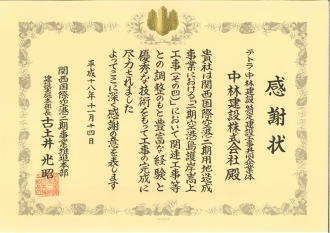 感謝状
テトラ・中林建設特定建設工事共同企業体
中林建設株式会社殿
貴社は関西国際空港二期用地造成
事業における二期空港島護岸嵩上
工事(その四)において関連工事等
との調整のもと豊富な経験と
優秀な技術をもって工事の完成に
尽力されました
よってここに深く感謝の意を表します
平成十八年十一月十四日
関西国際空港二期事業推進本部
建設事務所長 古土井光昭